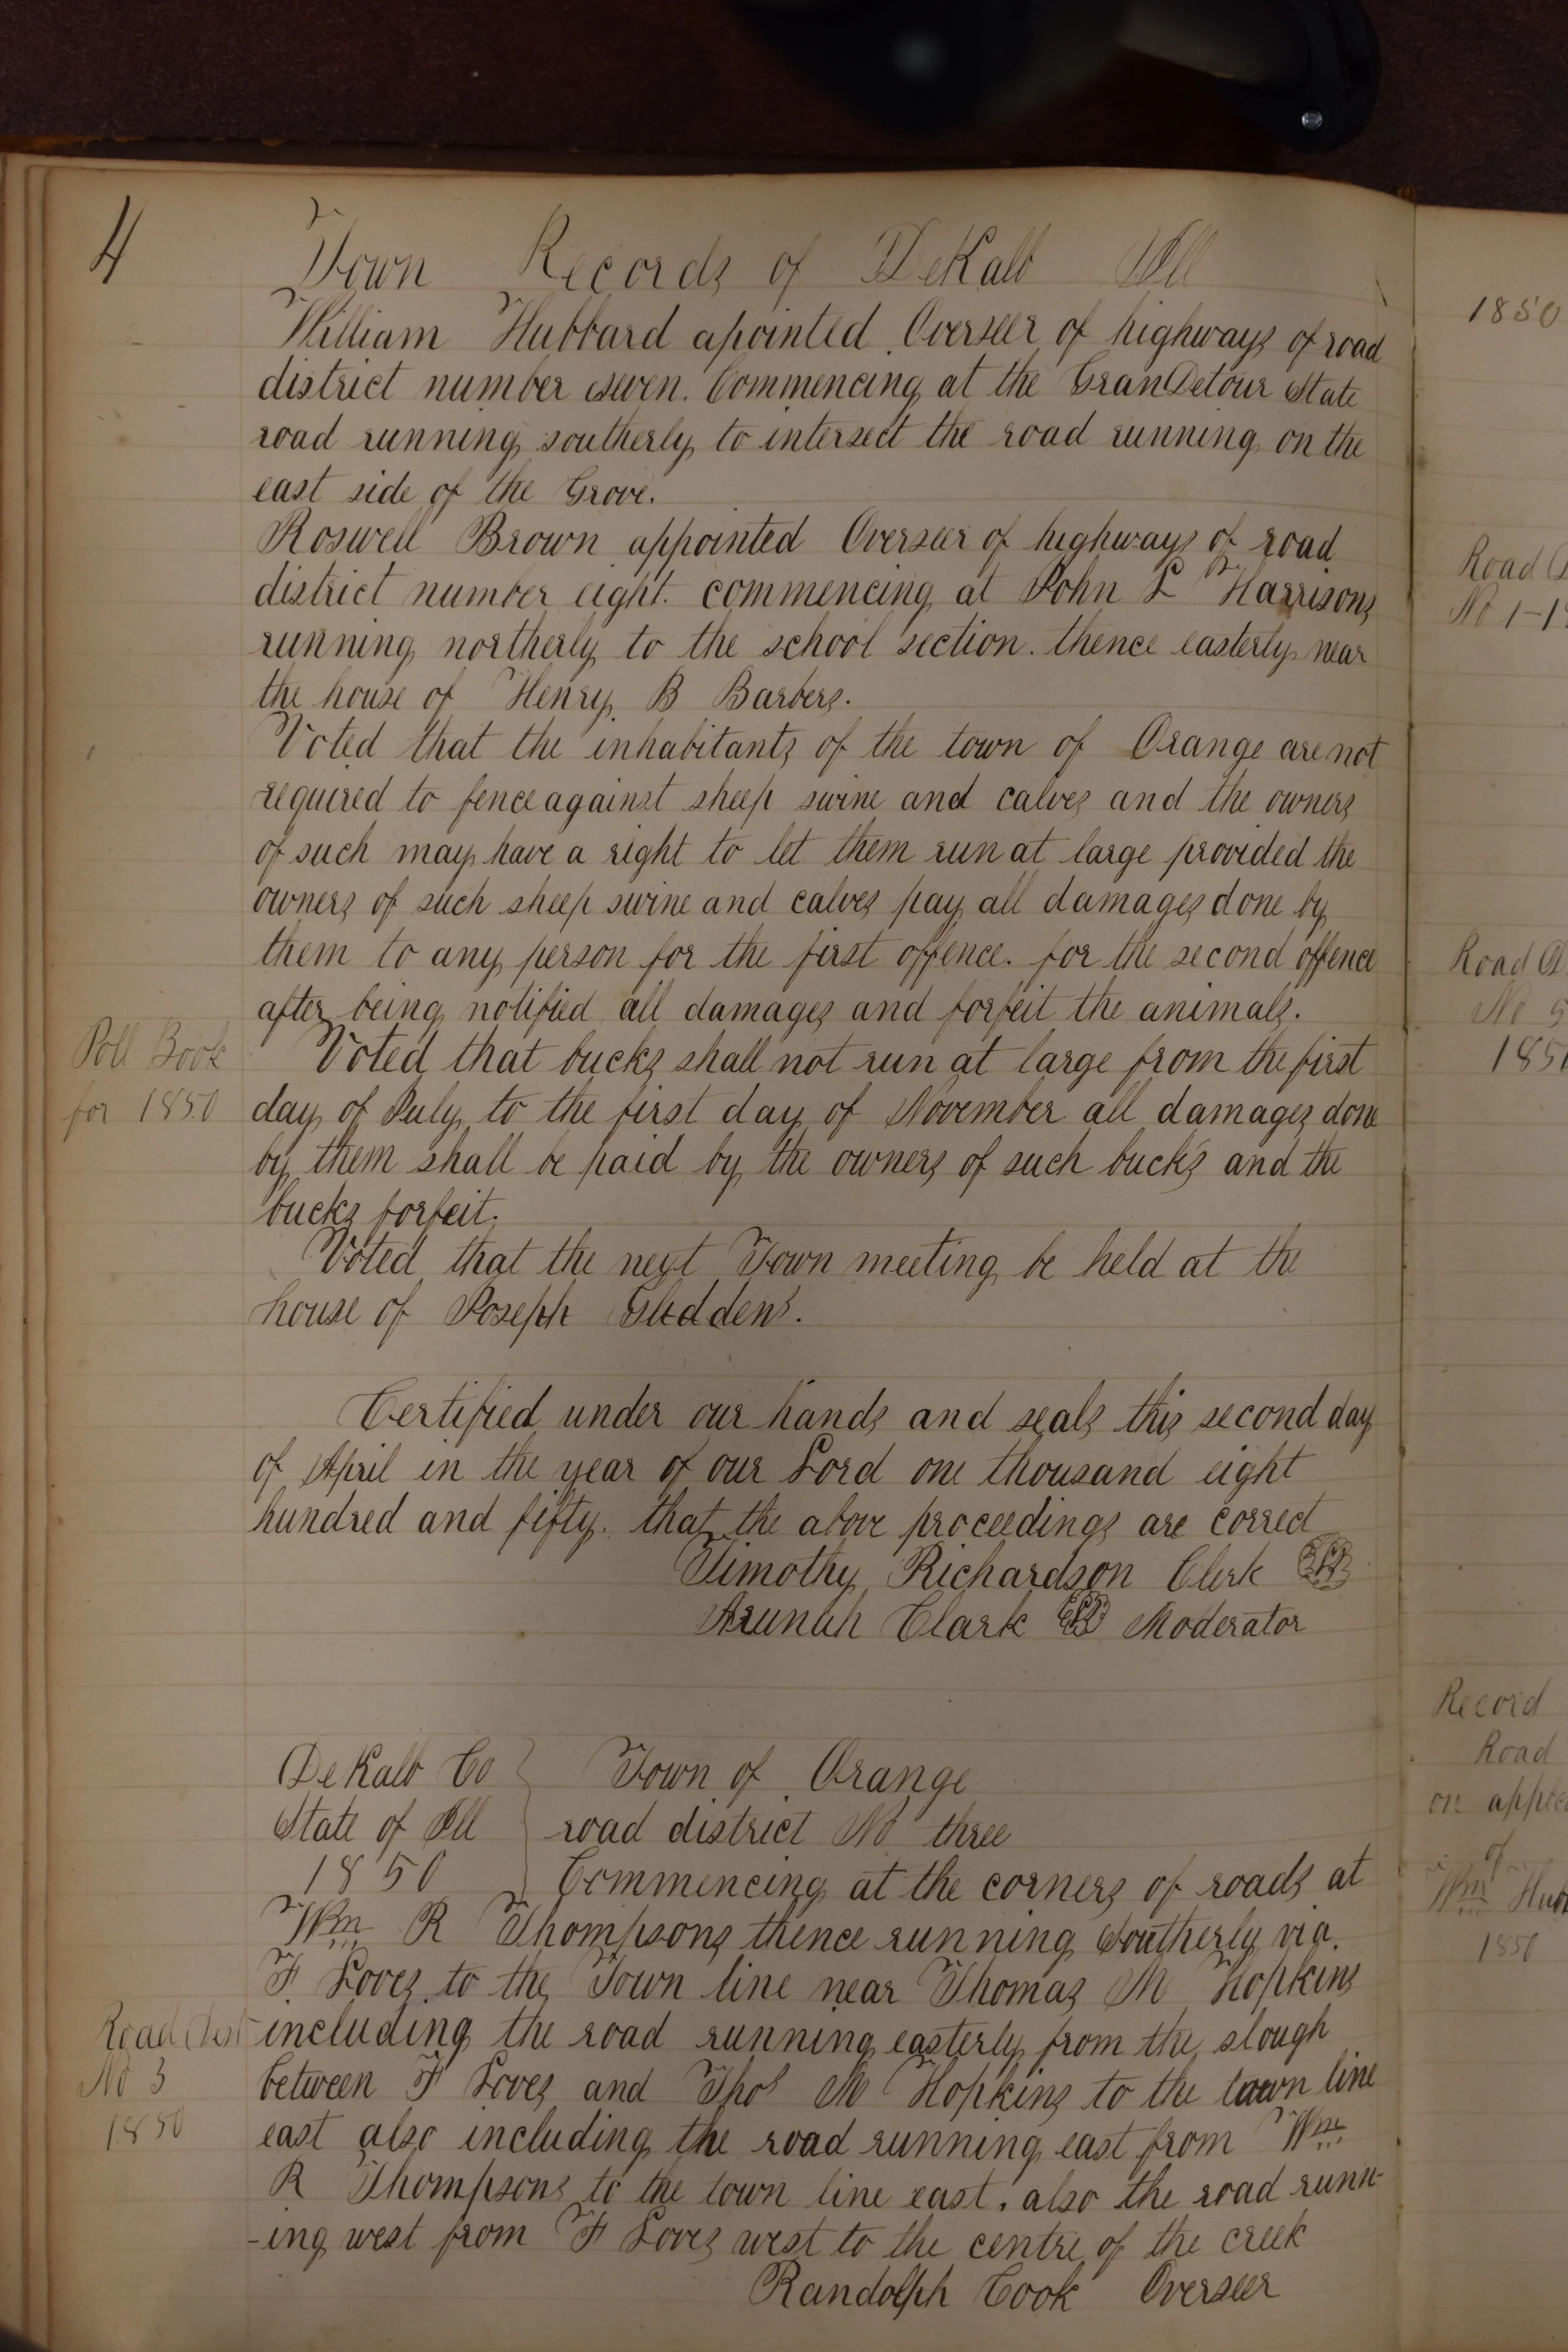 4
Town Records of DeKalb Ill
William Hubbard apointed Overseer of highways of road
district number seven. Commencing at the GranDetour State
road running southerly to intersect the road running on the
east side of the Grove.
Roswell Brown appointed Overseer of highways of road
district number eight. commencing at John L Harrisons
running northerly to the school section. thence easterly near
the house of Henry B Barbers.
Voted that the inhabitants of the town of Orange are not
required to fence against sheep swine and calves and the owners
of such may have a right to let them run at large provided the
owners of such sheep swine and calves pay all damages done by
them to any person for the first offence. for the second offence
after being notified all damages and forfeit the animals.
Poll Book
for 1850
Voted that bucks shall not run at large from the first
day of July to the first day of November all damages done
by them shall be paid by the owners of such bucks and the
bucks forfeit.
Voted that the next Town meeting be held at the
house of Joseph Gliddens.
Certified under our hands and seals this second day
of April in the year of our Lord one thousand eight
hundred and fifty. that the above proceedings are correct
Timothy Richardson Clerk
Arunah Clark Moderator
DeKalb Co
State of Ill
1850
Town of Orange
road district No three
Commencing at the corners of roads at
Wm R Thompsons thence running Southerly via.
F Loves to the Town line near Thomas M Hopkins
Road Dist
No 3
1850
including the road running easterly from the slough
between F Loves and Thos M Hopkins to the town line
east also including the road running east from Wm
R Thompsons to the town line east. also the road runn-
-ing west from F Loves west to the centre of the creek
Randolph Cook Overseer
1850
Road
No 1-
Road
No 5
185
Record
Road
on
of
Wm
1850